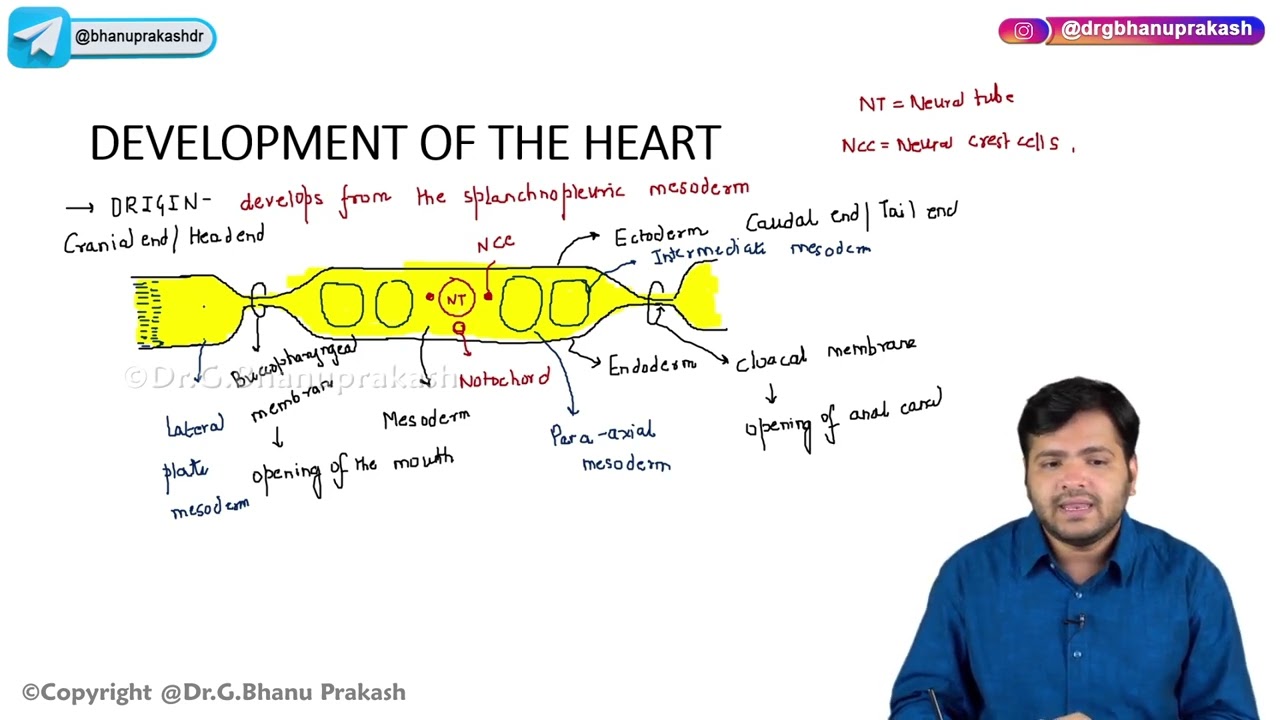 @bhanuprakashdr
@drgbhanuprakash
NT = Neural tube
NCC = Neural crest cells,
DEVELOPMENT OF THE HEART
→ ORIGIN- develops from the splanchnopleuric mesoderm
Cranial end/ Head end
NCC
Ectoderm
Caudal end/ Tail end
Intermediate mesoderm
NT
Buccopharyngeal
membran
↓
opening of the mouth
Lateral
plate
mesoderm
Mesoderm
Notochord
Endoderm
Para-axial
mesoderm
Cloacal membrane
↓
opening of anal canal
©Dr.G.Bhanuprakash
©Copyright @Dr.G.Bhanu Prakash